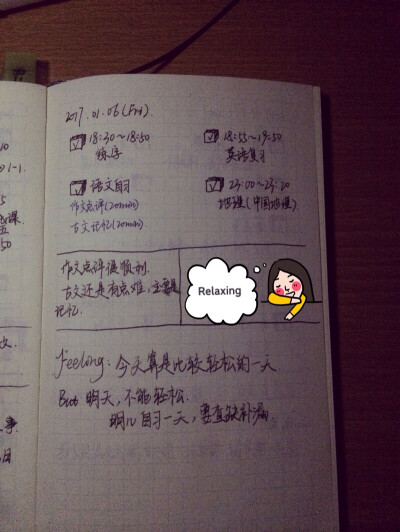 2017.01.06(Fri).
18:30~18:50
练字
18:55~19:50
英语复习
语文自习
作文点评(20min)
古文记忆(20min)
23:00~23:20
地理(中国地理)
作文点评很顺利.
古文还是有点难,主要是
记忆.
Relaxing
feeling:今天算是比较轻松的一天
But 明天,不能轻松.
明儿自习一天,要查缺补漏.
10
01-1.
5
课
50
事